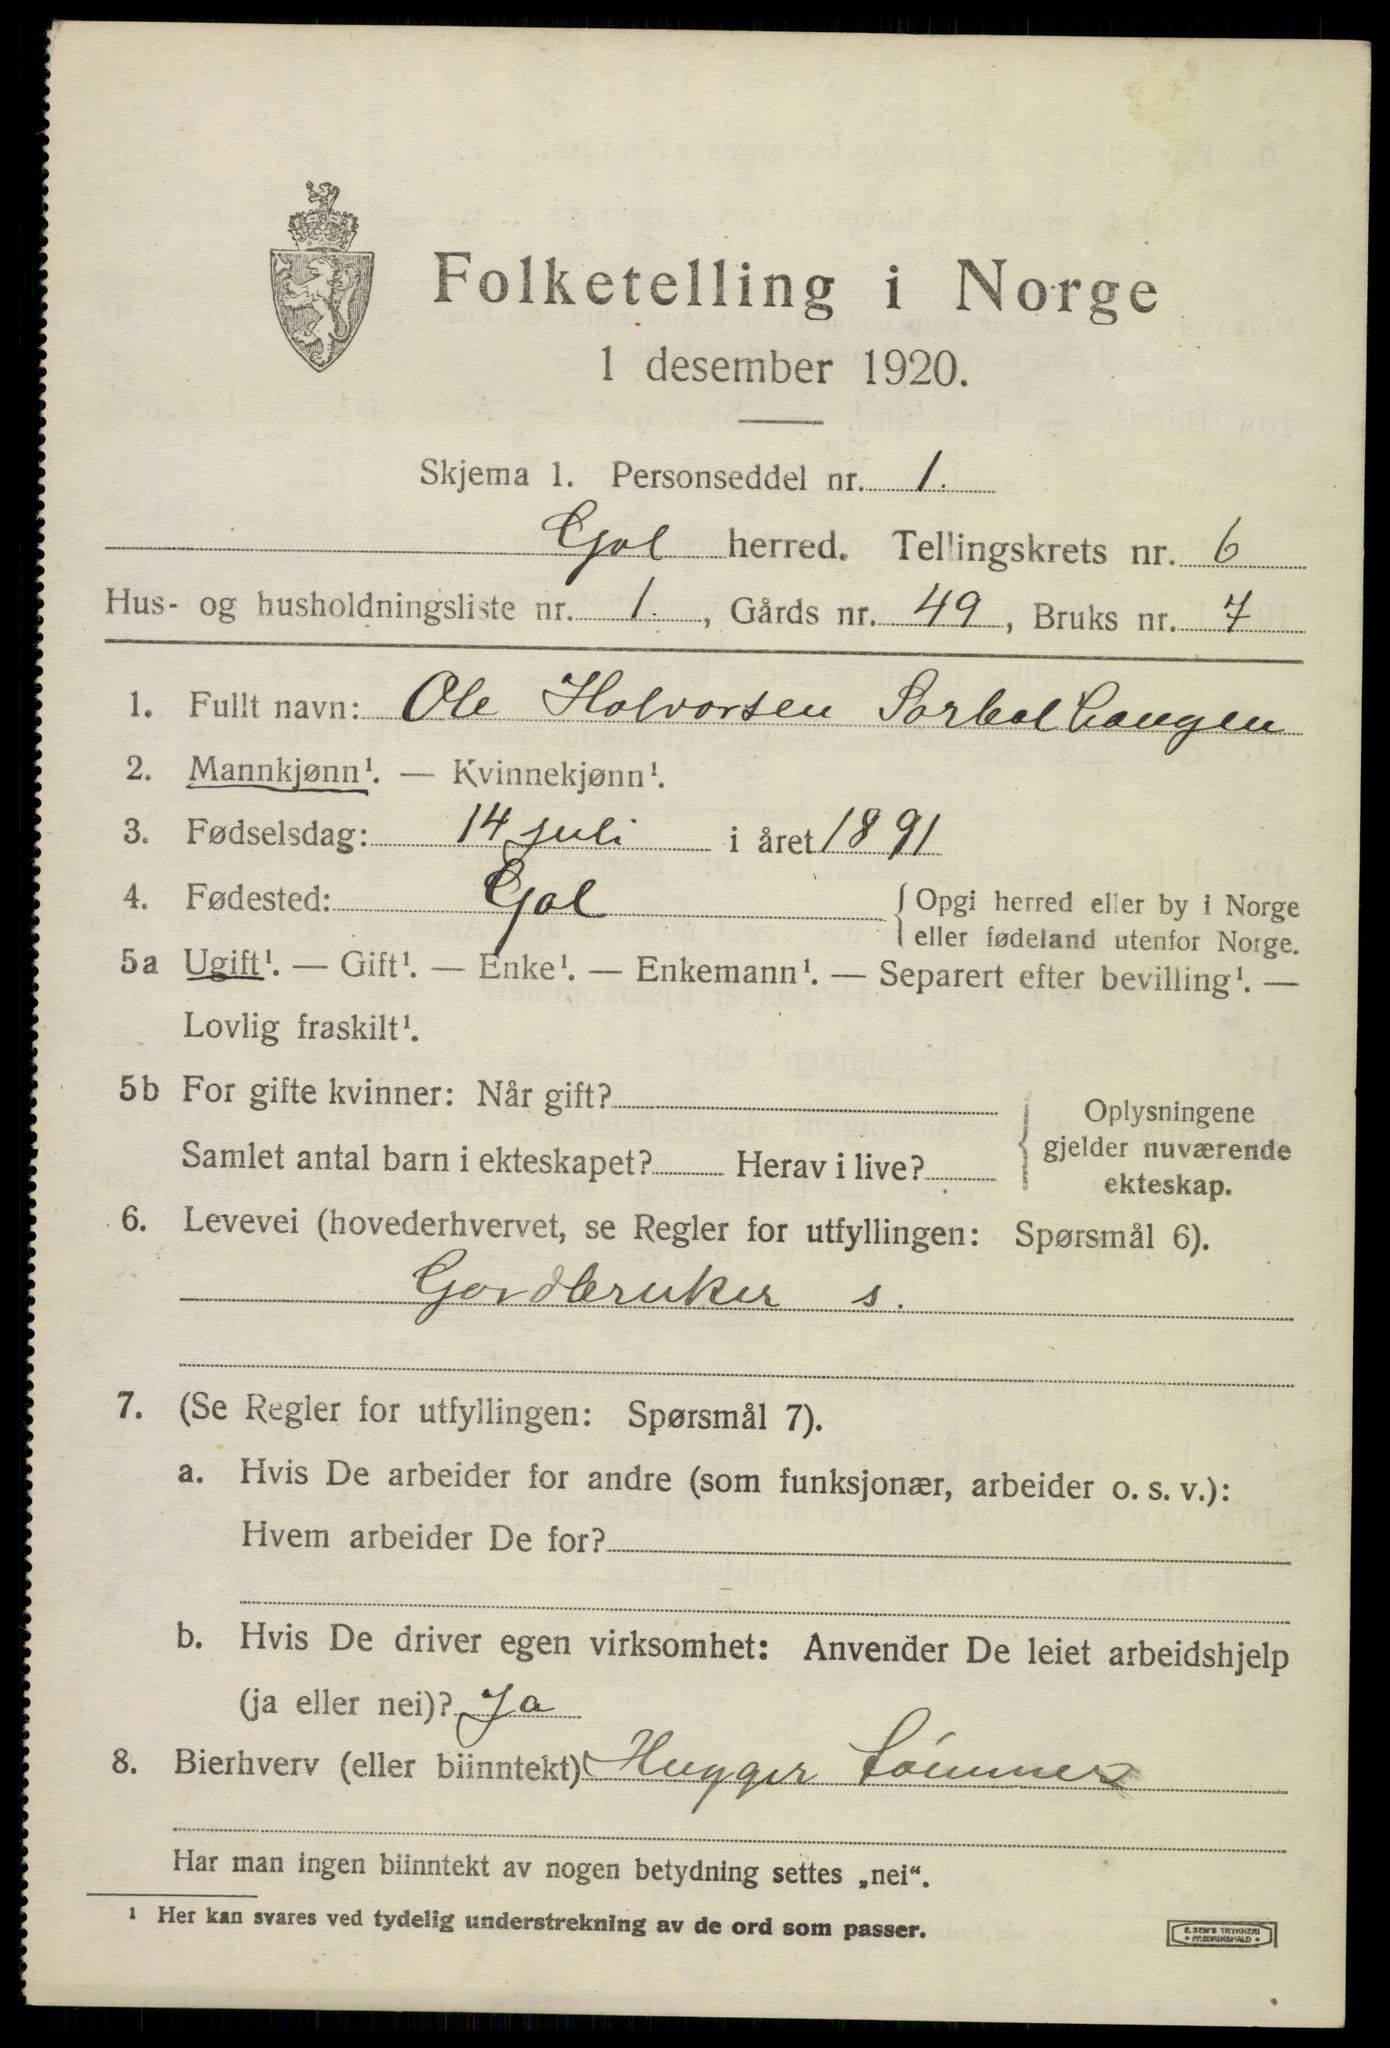 Folketelling i Norge
1 desember 1920.
Skjema 1. Personseddel nr. 1.
Gol herred. Tellingskrets nr. 6
Hus- og husholdningsliste nr. 1., Gårds nr. 49, Bruks nr. 7
1. Fullt navn: Ole Halvorsen Sorbel haugen
2. Mannkjønn¹. — Kvinnekjønn¹.
3. Fødselsdag: 14 juli i året 1891
4. Fødested: Gol { Opgi herred eller by i Norge
eller fødeland utenfor Norge.
5a Ugift¹. — Gift¹. — Enke¹. — Enkemann¹. — Separert efter bevilling¹. —
Lovlig fraskilt¹.
5b For gifte kvinner: Når gift?
Samlet antal barn i ekteskapet? Herav i live?
{ Oplysningene
gjelder nuværende
ekteskap.
6. Levevei (hovederhvervet, se Regler for utfyllingen: Spørsmål 6).
Gardbruker s.
7. (Se Regler for utfyllingen: Spørsmål 7).
a. Hvis De arbeider for andre (som funksjonær, arbeider o. s. v.):
Hvem arbeider De for?
b. Hvis De driver egen virksomhet: Anvender De leiet arbeidshjelp
(ja eller nei)? Ja
8. Bierhverv (eller biinntekt) Hugger tömmer
Har man ingen biinntekt av nogen betydning settes „nei“.
¹ Her kan svares ved tydelig understrekning av de ord som passer.
E. SEM'S TRYKKERI
* FREDRIKSHALD *